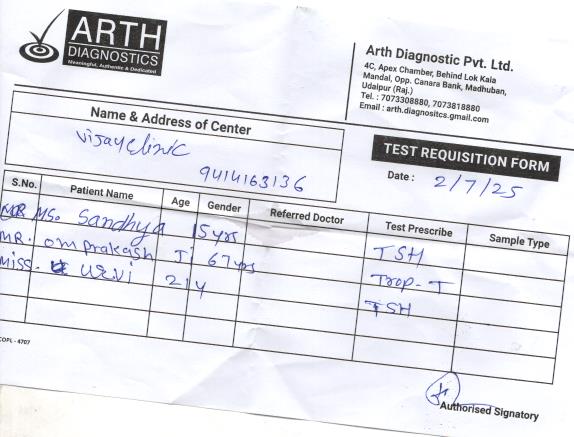 ARTH
DIAGNOSTICS
Meaningful, Authentic & Dedicated
Arth Diagnostic Pvt. Ltd.
4C, Apex Chamber, Behind Lok Kala
Mandal, Opp. Canara Bank, Madhuban,
Udaipur (Raj.)
Tel. : 7073308880, 7073818880
Email : arth.diagnositcs.gmail.com
Name & Address of Center
Vijay clinic
9414163136
TEST REQUISITION FORM
Date : 2/7/25
S.No. Patient Name Age Gender Referred Doctor Test Prescribe Sample Type
MS. Sandhya 15 yrs TSH
MR. om prakash Ji 67 yrs Trop-T
Miss. Urvi 21 y TSH
COPL - 4707
Authorised Signatory